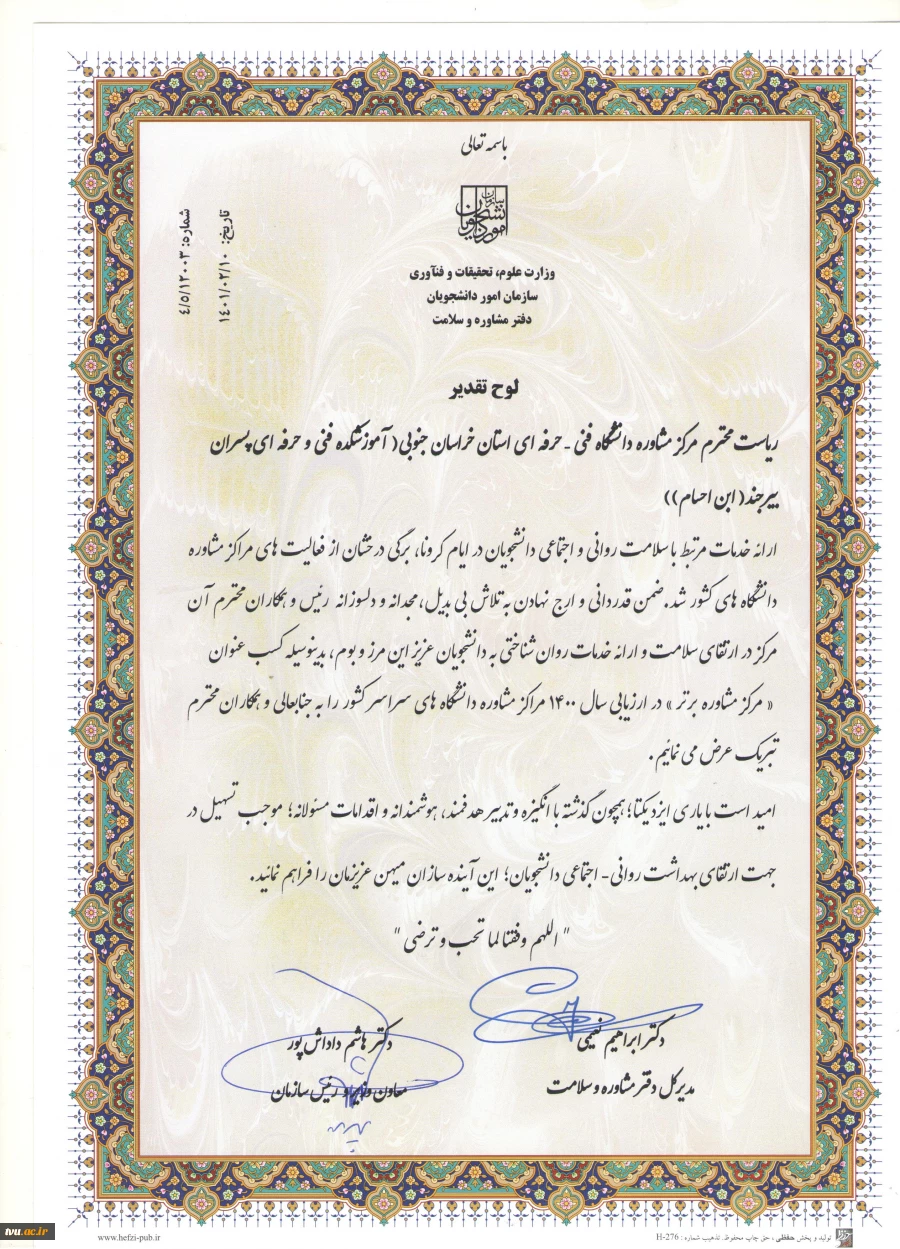 باسمه تعالی
سازمان امور دانشجویان
وزارت علوم، تحقیقات و فنآوری
سازمان امور دانشجویان
دفتر مشاوره و سلامت
شماره: ٤/٥/١٢٠٠٣
تاریخ: ١٤٠١/٠٢/١٠
لوح تقدیر
ریاست محترم مرکز مشاوره دانشگاه فنی - حرفه ای استان خراسان جنوبی( آموزشکده فنی و حرفه ای پسران
بیرجند( ابن احسام))
ارائه خدمات مرتبط با سلامت روانی و اجتماعی دانشجویان در ایام کرونا، برگی درخشان از فعالیت های مراکز مشاوره
دانشگاه های کشور شد. ضمن قدردانی و ارج نهادن به تلاش بی بدیل، مجدانه و دلسوزانه رئیس و همکاران محترم آن
مرکز در ارتقای سلامت و ارائه خدمات روان شناختی به دانشجویان عزیز این مرز و بوم، بدینوسیله کسب عنوان
« مرکز مشاوره برتر » در ارزیابی سال ۱۴۰۰ مراکز مشاوره دانشگاه های سراسر کشور را به جنابعالی و همکاران محترم
تبریک عرض می نمائیم.
امید است با یاری ایزد یکتا؛ همچون گذشته با انگیزه و تدبیر هدفمند، هوشمندانه و اقدامات مسئولانه؛ موجب تسهیل در
جهت ارتقای بهداشت روانی- اجتماعی دانشجویان؛ این آینده سازان میهن عزیزمان را فراهم نمائید.
" اللهم وفقنا لما تحب و ترضی "
دکتر ابراهیم نعیمی
مدیرکل دفتر مشاوره و سلامت
دکتر هاشم داداش پور
معاون وزیر و رئیس سازمان
tvu.ac.ir
www.hefzi-pub.ir
تولید و پخش حفظی ، حق چاپ محفوظ. تذهیب شماره : H-276